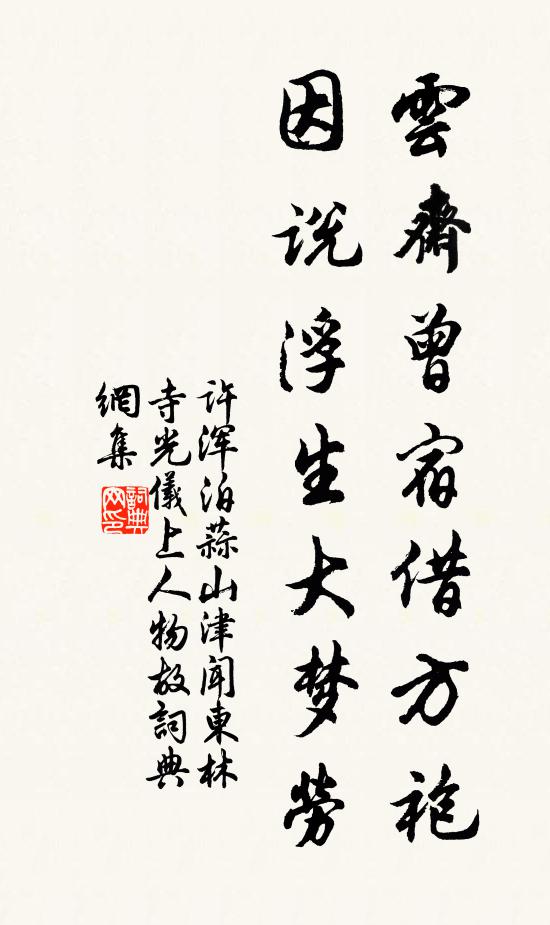 雲齋曾宿借方袍
因说浮生大梦勞
许浑泊蒜山津闻東林
寺光儀上人物故詞典
網集
詞典网印